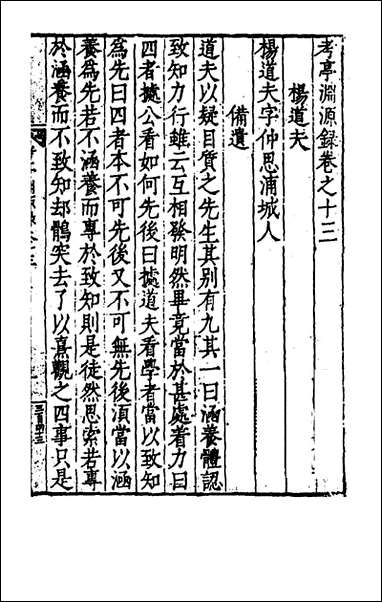 考亭淵源錄卷之十三
楊道夫
楊道夫字仲思浦城人
備遺
道夫以疑目質之先生其別有九其一曰涵養體認
致知力行雖云互相發明然畢竟當於甚處着力曰
四者據公看如何先後曰據道夫看學者當以致知
為先曰四者本不可先後又不可無先後湏當以涵
養為先若不涵養而專於致知則是徒然思索若專
於涵養而不致知却鶻突去了以熹觀之四事只是